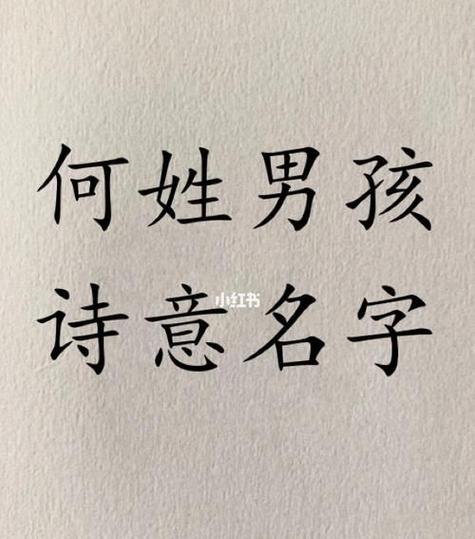 何姓男孩
小红书
诗意名字